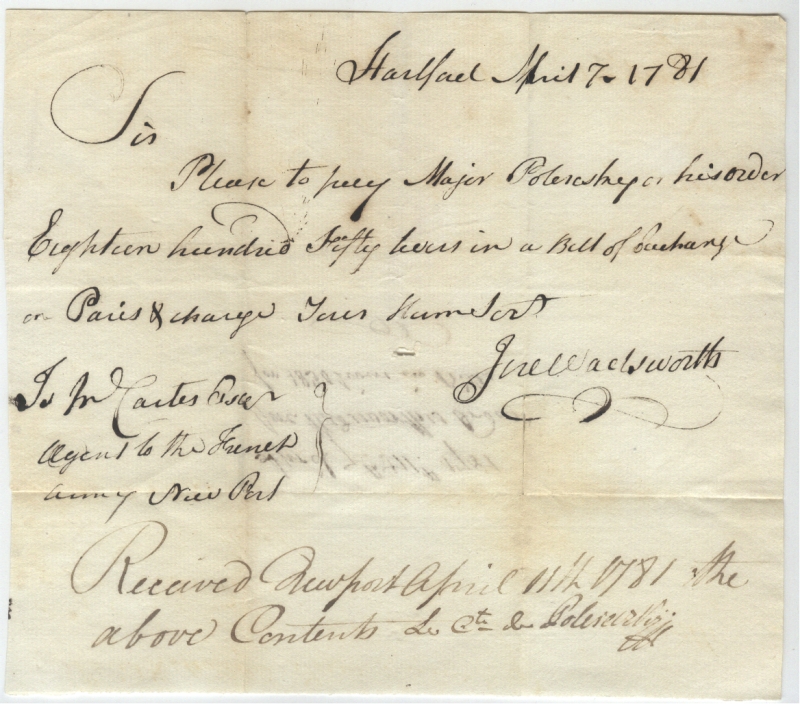 Hartford April 7 1781
Sir
Please to pay Major Polereskey or his order
Eighteen hundred Fifty livers in a Bill of Exchange
on Paris & charge Your Hum Sert
Jere Wadsworth
To Jno Carter Esqr
Agent to the French
Army New Port
Received Newport April 11th 1781 the
above Contents Le Cte de Polereskÿ